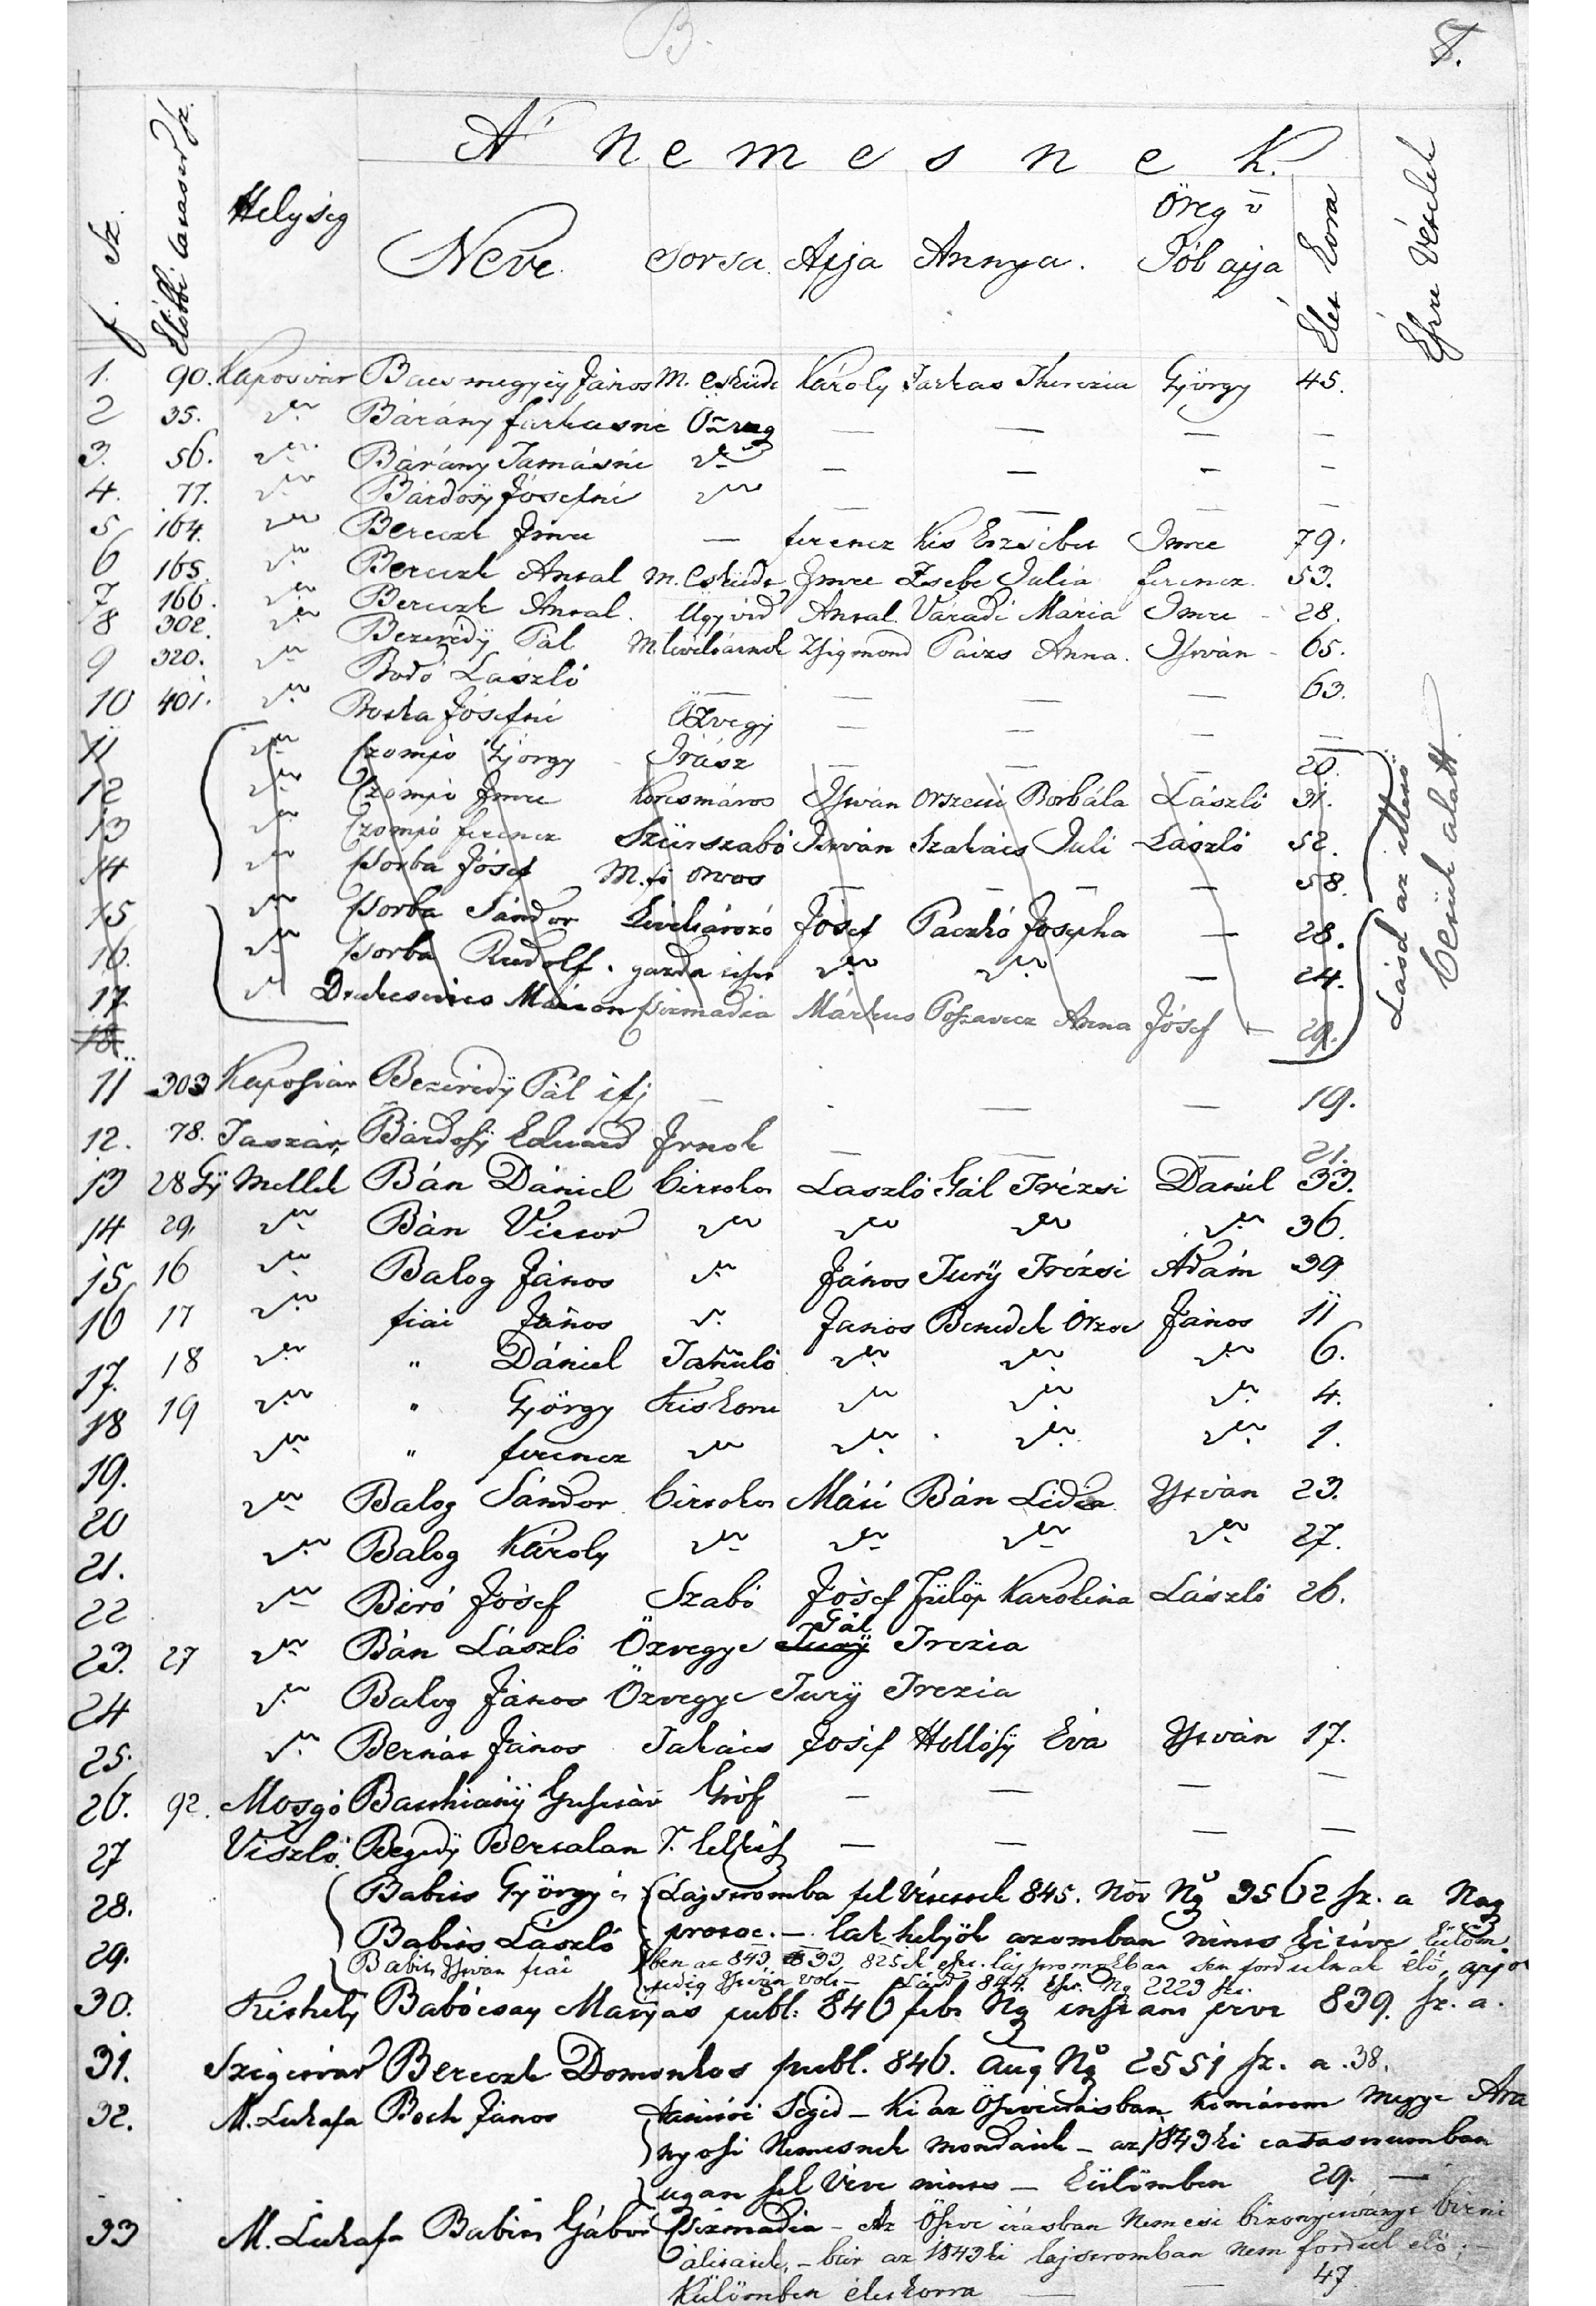 B.
A' nemesnek.
f. Sz. Előbbi Cataster sz. Helység Neve Sorsa Apja Annya. Öreg v Jób apja Élet kora Észre Vételek
1. 90. Kaposvár Bacsmegyey János M. Esküdt Károly Farkas Therezia György 45.
2 35. " Bárány farkasné Özveg — — — —
3. 56. " Bárány Tamásné " — — — —
4. 77. " Bárdosÿ Jósefné " — — — —
5 164. " Bereczk Imre — ferencz Kis Erzsébet Imre 79.
6 165. " Bereczk Antal M. Esküdt Imre Zsebe Julia ferencz 53.
7 166. " Bereczk Antal. Ügyvéd Antal Váradi Mária Imre - 28.
8 302. " Bezerédÿ Pál M. levéltárnok Zsigmond Paizs Anna. István - 65.
9 320. " Bodó László — — — — 63.
10 401. " Boska Jósefné Özvegy — — — —
11 " Czompó György Irász — — — 20.
12 " Czompó Imre Korcsmáros István Orszeni Borbála László 31.
13 " Czompó ferencz Szürszabó István Szakács Juli László 52.
14 " Csorba Jósef M. fő orvos — — — — 58.
15 " Csorba Sándor Levéltárózó Jósef Paczkó Josepha — 28.
16. " Csorba Rudolf. gazda tiszt " " — 24.
17. " DrakseVics Márton Csizmadia Márkus Poszavecz Anna Jósef — 29.
18.
Lásd az illető
betük alatt
11 303 Kaposvár Bezerédÿ Pál ifj — - — — 19.
12. 78. Taszár, Bárdosÿ Eduard Irnok — — — 21.
13 28 Gÿ Mellek Bán Dániel birtokos László Gál Trézsi Dániel 33.
14 29. " Bán Victor " " " " 36.
15 16 " Balog János " János Turÿ Trézsi Ádám 39
16 17 " fiai János " János Benedek Örzse János 11
17. 18 " " Dániel Tanuló " " " 6.
18 19 " " György Kiskoru " " " 4.
19. " " ferencz " " " " 1.
20 " Balog Sándor birtokos Máté Bán Lidia István 23.
21. " Balog Károly " " " " 27.
22 " Biró Jósef Szabó Jósef Fülöp Karolina László 26.
23. 27 " Bán László Özvegye Turÿ Gál Trezia
24 " Balog János Özvegye Turÿ Trezia
25. " Bernát János Takács Josef Hollósÿ Éva István 17.
26. 92. Mosgó Batthiánÿ Gusztáv Gróf — — — —
27 Viszló Begedÿ Bertalan r. lelkész — — — —
28. Babits György és Lajstromba fel Vétettek 845. Nov Ng 3562 sz. a Nag
29. Babits László protoc. — lak helyök azomban nints ki téve külöm
Babits István fiai ben az 843, 833, 825ik észt. lajstromokban sem fordulnak elő, apjok
pedig István volt — Lásd 844. Ng 2223 sz.
30. Kishely Babócsay Matyas publ: 846 feb. Ng 839. sz. a.
31. Szigetvár Bereczk Domonkos publ. 846. Aug Ng 2551 sz. a. 38.
32. M. Lukafa Boch János tanitói Segéd — Ki az Öszveirásban Komárom Megye Ara
nyosi Nemesnek mondatik — az 1843ki catastrumban
ugan fel Véve nints — külömben 29. —
33 M. Lukafa Babits Gábor Csizmadia — Az Öszve irásban Nemesi bizonyitványt birni
álitatik, — bár az 1843ki lajstromban nem fordul elő; —
Külömben élet korra — — 47